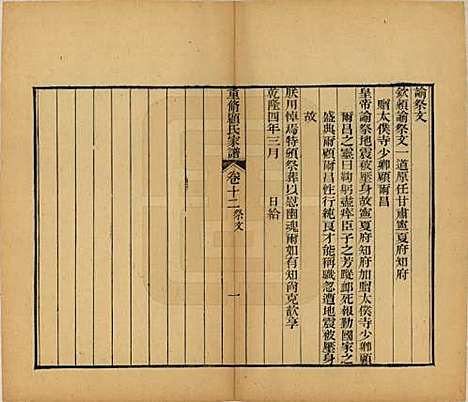 諭祭文
欽頒諭祭文一道原任甘肅寧夏府知府
贈太僕寺少卿顧爾昌
皇帝諭祭地震被壓身故寧夏府知府加贈太僕寺少卿顧
爾昌之靈曰鞠躬盡瘁臣子之芳蹤䘏死報勤國家之
盛典爾顧爾昌性行純良才能稱職忽遭地震被壓身
故
朕用悼焉特頒祭葬以慰幽魂爾如有知尚克歆享
乾隆四年三月 日給
重修顧氏家譜 卷十二 祭文 一